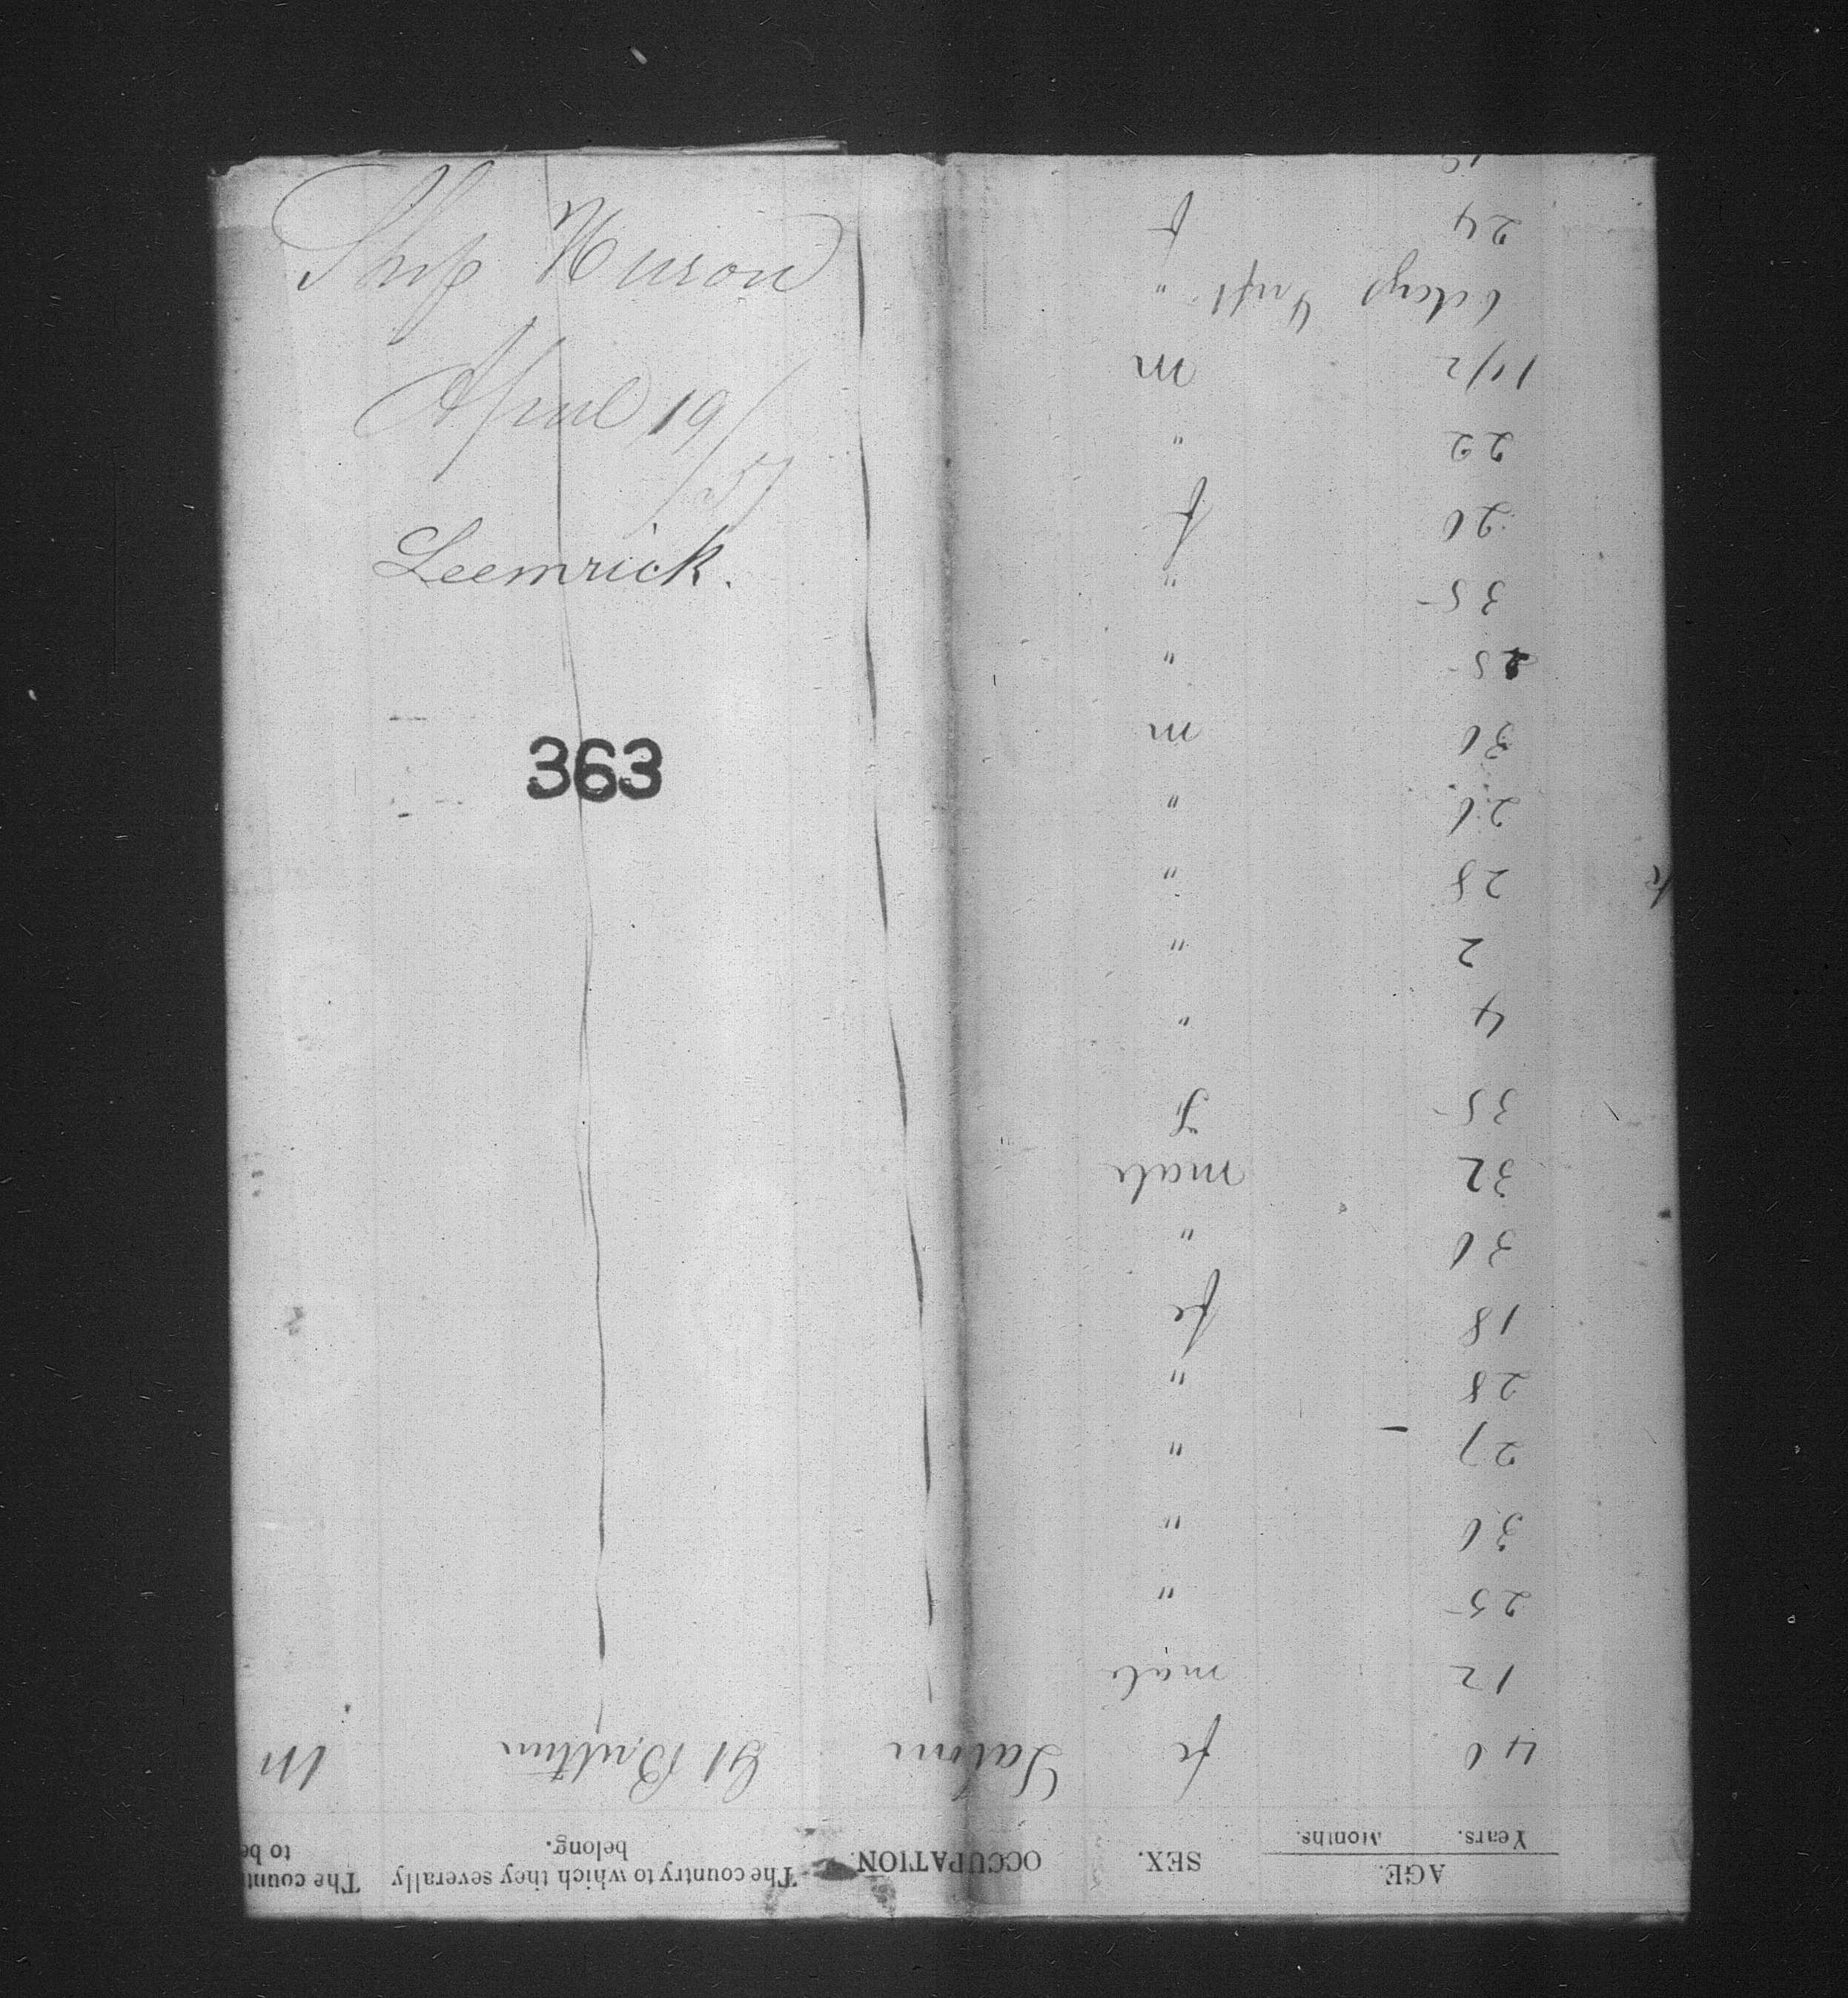 Ship Huron
April 19/
/51
Leemrick.
363
AGE. SEX. OCCUPATION. The country to which they severally belong. The count
Years. Months. to be
40 fe Gt Brittin
12 male
25 "
30 "
27 - "
28 "
18 fe
30 "
32 male
35 f
4 "
2 "
28 "
26 "
30 m
25 "
35 "
20 f
22 "
1 1/2 m
6 days Inft "
24 f